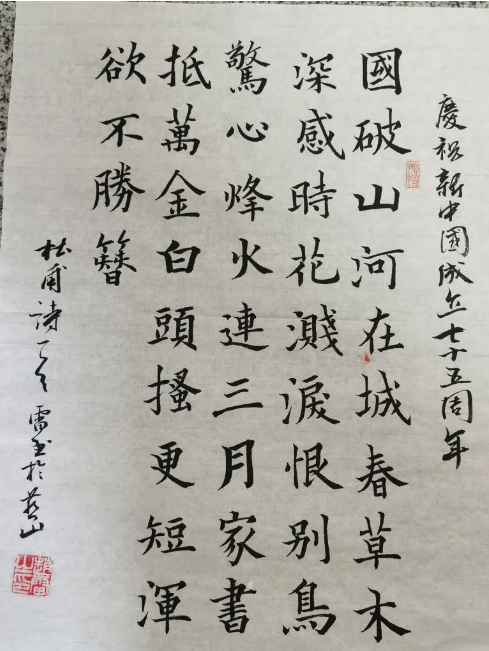 慶祝新中國成立七十五周年
國破山河在城春草木
深感時花濺淚恨別鳥
驚心烽火連三月家書
抵萬金白頭搔更短渾
欲不勝簪
杜甫詩一首 雷書於燕山